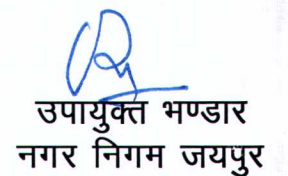 उपायुक्त भण्डार
नगर निगम जयपुर